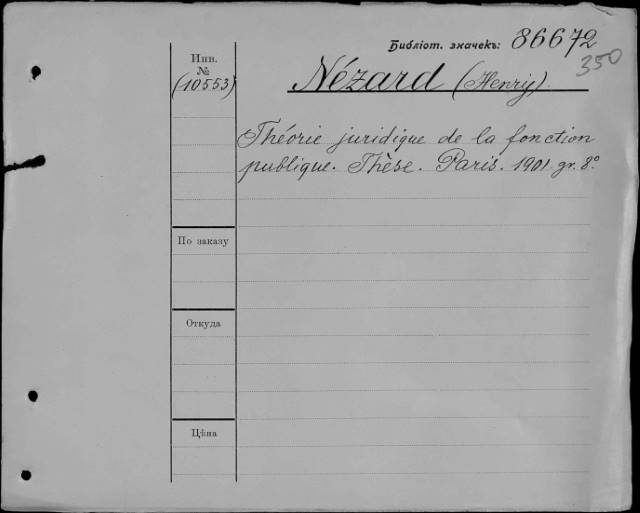 Библіот. значекъ: 86672
350
Инв.
№
(10553)
Nézard (Henry).
Théorie juridique de la fonction
publique. Thèse. Paris. 1901 gr. 8º
По заказу
Откуда
Цѣна